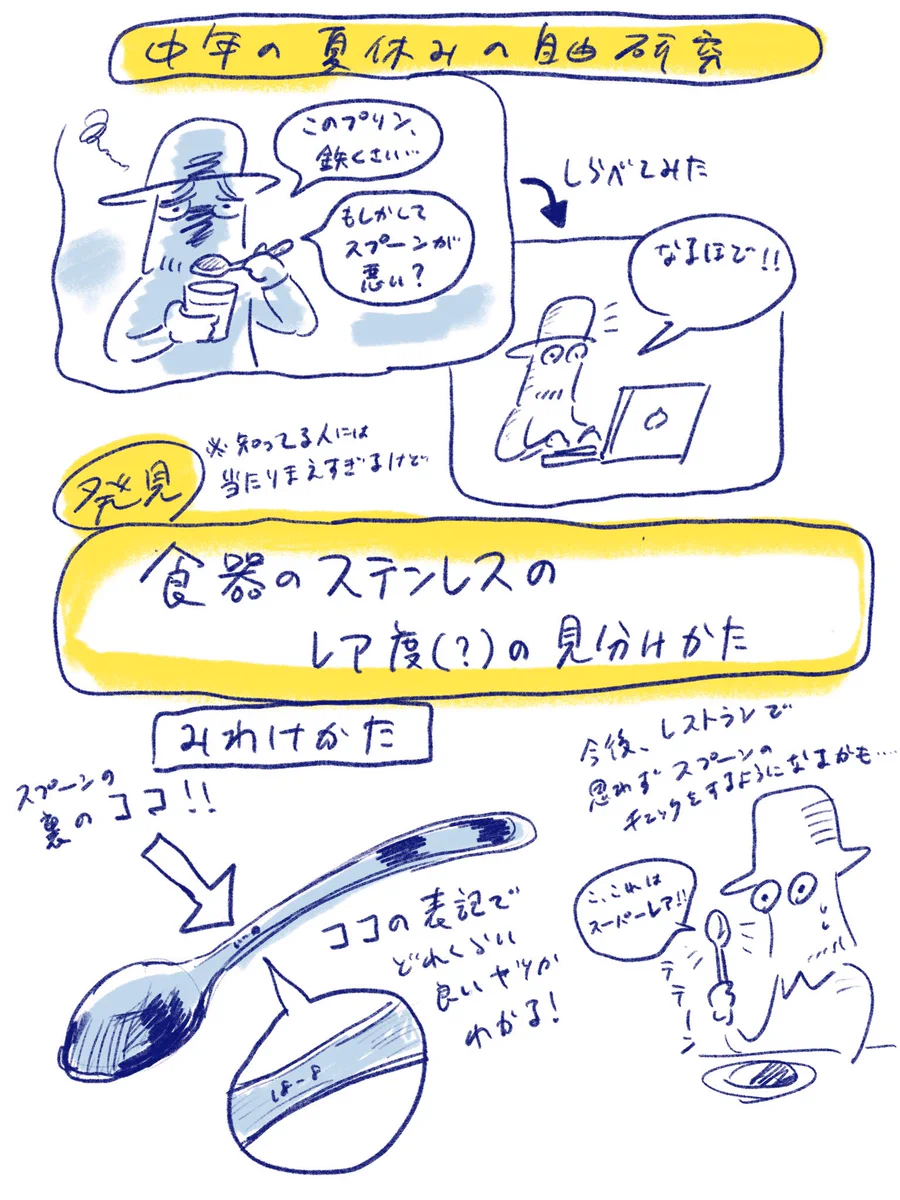 中年の夏休みの自由研究
このプリン、
鉄くさい…
もしかして
スプーンが
悪い?
しらべてみた
なるほど!!
発見
※知ってる人には
当たりまえすぎるけど
食器のステンレスの
レア度(?)の見分けかた
みわけかた
スプーンの
裏のココ!!
ココの表記で
どれくらい
良いヤツか
わかる!
18-8
今後、レストランで
思わずスプーンの
チェックをするようになるかも…
こ、これは
スーパーレア!!
テテーン